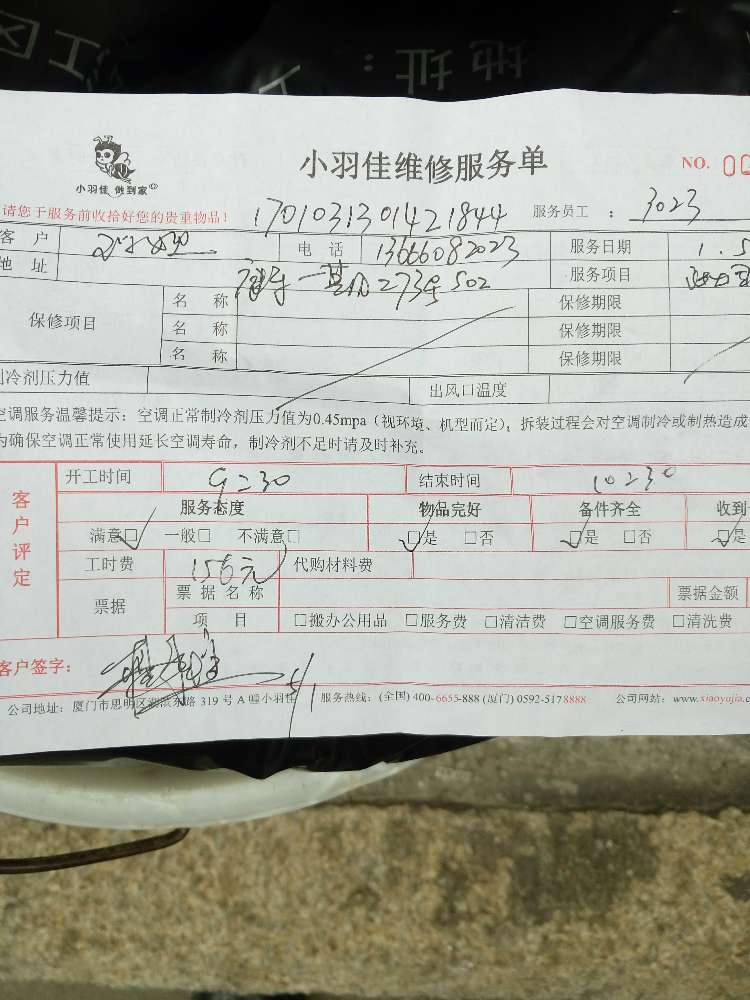 地址：
小羽佳 做到家
小羽佳维修服务单
NO. 00
请您于服务前收拾好您的贵重物品！
1701031301421844
服务员工 ： 3023
客 户
电 话 13666082023
服务日期 1.5
地 址 一基机273号502
服务项目
保修项目
名 称 保修期限
名 称 保修期限
名 称 保修期限
制冷剂压力值 出风口温度
空调服务温馨提示：空调正常制冷剂压力值为0.45mpa（视环境、机型而定），拆装过程会对空调制冷或制热造成
为确保空调正常使用延长空调寿命，制冷剂不足时请及时补充。
客户评定
开工时间 9:30 结束时间 10:30
服务态度 物品完好 备件齐全 收到
满意□ 一般□ 不满意□ □是 □否 □是 □否 □是
工时费 156元 代购材料费
票据 票据名称 票据金额
项 目 □搬办公用品 □服务费 □清洁费 □空调服务费 □清洗费
客户签字：
5/1
公司地址：厦门市思明区湖滨东路 319 号 A 幢小羽佳 服务热线：(全国) 400-6655-888 (厦门) 0592-5178888 公司网站：www.xiaoyujia.c